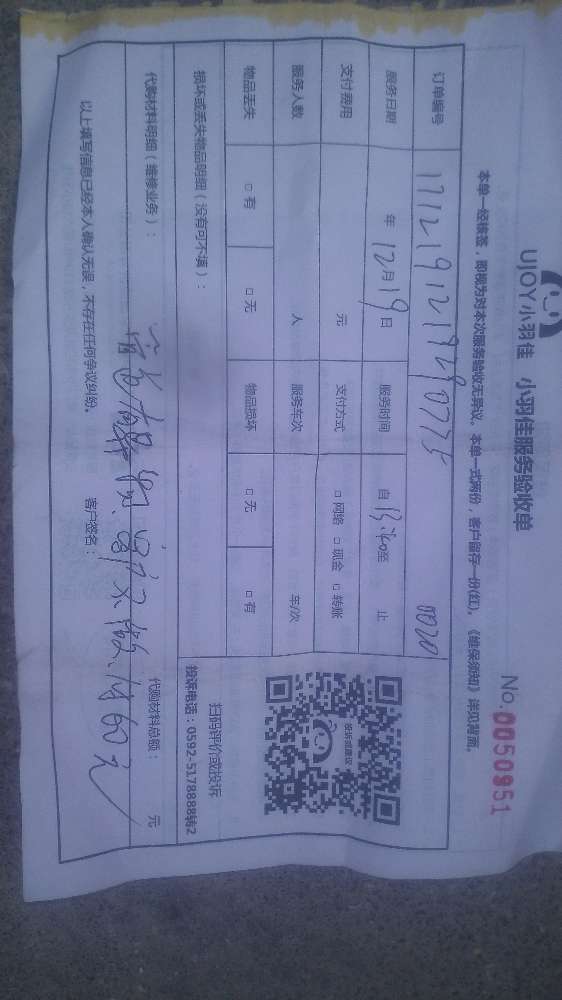 UJOY小羽佳 小羽佳服务验收单
No.0050951
本单一经核签，即视为对本次服务验收无异议。本单一式两份，客户留存一份(红)。《维保须知》详见背面。
订单编号 0020
服务日期 年 12月19日 服务时间 自 至 止
支付费用 元 支付方式 □ 网络 □ 现金 □ 转账
服务人数 人 服务车次 车/次
物品丢失 □ 有 □ 无 物品损坏 □ 无 □ 有
损坏或丢失物品明细（没有可不填）：
代购材料明细（维修业务）： 代购材料总额： 元
投诉或建议
扫码评价或投诉
投诉电话：0592-5178888转2
以上填写信息已经本人确认无误，不存在任何争议纠纷。 客户签名：